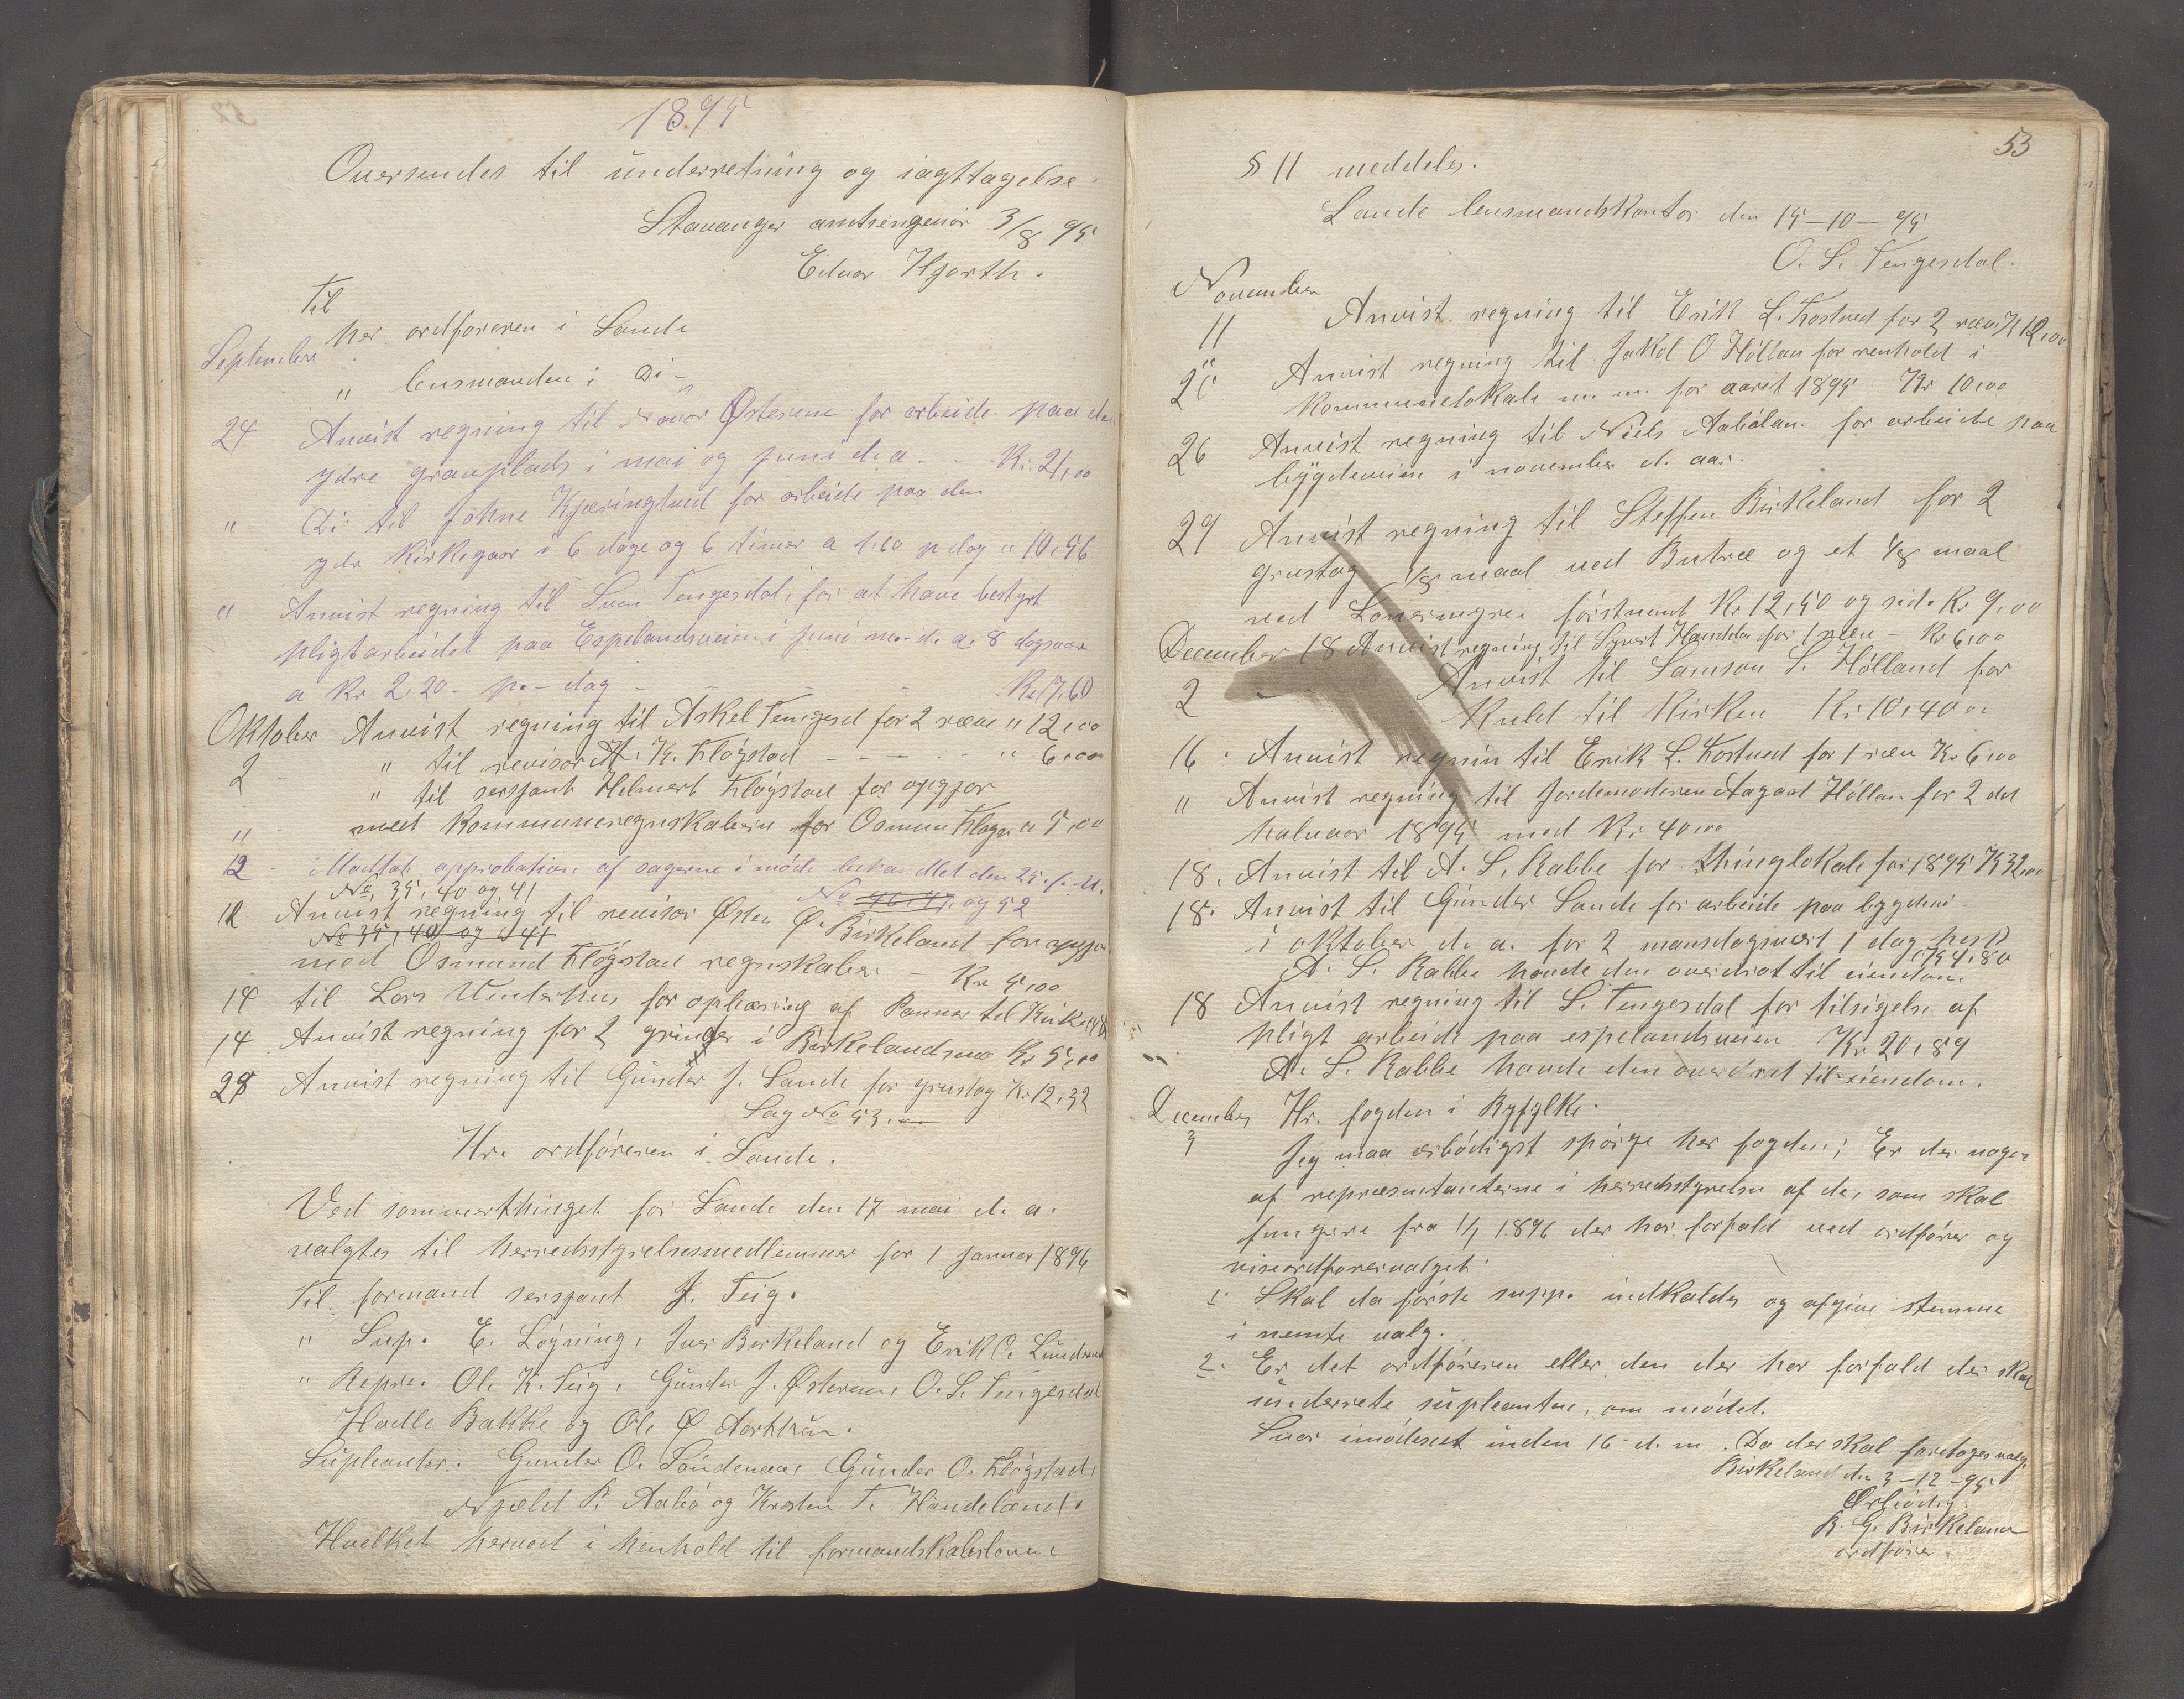 1895
Oversendes til underretning og iagttagelse.
Stavanger amtsengeniør 3/8 95
Edvar Hjorth.
Til
her ordføreren i Sande
September
" lensmanden i Di -
24 Anvist regning til Gunar Østerene for arbeide paa den
ydre gravplads i mai og juni d. a. - - Kr. 21,00
" Di til Johne Kjæringtved for arbeide paa den
ydr Kirkegaar i 6 dage og 6 timer a 1,60 p dag " 10,56
" Anvist regning til Sven Tengesdal, for at have bestyrt
pligtarbeidet paa Espelandsveien i juni m. d. a. 8 dagsvær
a Kr 2,20 - p. - dag - - - Kr 17,60
Oktober Anvist regning til Askel Tengesd for 2 ræve " 12,00
2 - " til revisor A. K. Fløgstad - - - - " 6,00
" til sersjant Helmert Fløgstad for opgjør
" med Kommuneregnskabern for Osmun Fløgs " 5,00
12 - Modtat approbation af sagerne i møde behandlet den 25. f. M.
No 35, 40 og 41 No 46. 47. og 52
12 Anvist regning til revisor Østen Ø. Birkeland for opgjør
No 35, 40 og 41
med Osmund Fløgstad regnskaber - Kr 5,00
14 til Lars Vinterhus for oplæsing af Panner til Kirke
14 Anvist regning for 2 grinder i Birkelandsmo Kr 5,00
28 Anvist regning til Gunder J. Sande for grustag Kr 12,32
Sag No 53.
Hr. ordføreren i Sande.
Ved sommerthinget for Sande den 17 mai d. a.
valgtes til herredsstyrelsesmedlemmer for 1 januar 1896
Til formand sersjant J. Teig.
" Sup. E. Løyning, Iver Birkeland og Erik O. Lundsvad
" Repre. Ole K. Teig, Gunder J. Østerene, O. S. Tengesdal
Hadle Bakke og Ole Ø Aarthun.
Supleanter. Gunder O. Søndenaa, Gunder O. Fløgstad,
Njæld P. Aabø og Kristen T. Handeland.
Hvelket herved i henhold til formandskabslovens
53
§ 11 meddeles.
Sande lensmandskontor den 15-10-95
O. S. Tengesdal.
November
11 Anvist regning til Erik L. Fostved for 2 ræv Kr 12,00
25 Anvist regning til Jakol O Hølland for renhold i
Kommunelokale m. m. for aaret 1895 Kr 10,00
26 Anvist regning til Niels Aabølan. for arbeide paa
bygdeveien i november d. aar.
29 Anvist regning til Steffen Birkeland for 2
grustag 1/8 maal ved Butræ og et 1/8 maal
ved Lonemyren førstnævnt Kr 12,50 og sid. Kr 9,00
December 18 Anvist regning til Syvert Handela for 1 ræv - Kr 6,00
2 - - - Anvist til Samson S. Hølland for
Kuld til Kirken Kr 10,40
16. Anvist regnin til Erik L. Fostved for 1 ræv Kr 6,00
" Anvist regning til Jordemoderen Aagaat Høllan for 2 det
halvaar 1895 med Kr 40,00
18. Anvist til A. S. Rabbe for thinglokale for 1895 K 32,00
18. Anvist til Gunder Sande for arbeide paa bygdevei
i oktober d. a. for 2 mansdagsvært 1 dag hest
Kr 4,80
A. S. Rabbe havde den overdrat til eiendom
18 Anvist regning til S. Tengesdal for tilsigelse af
pligt arbeide paa espelandsveien Kr 20,89
A. S. Rabbe havde den overdrat til eiendom.
December Hr. fogden i Ryfylke.
3 Jeg maa ærbødigst spørge her fogden; Er der nogen
af repræsentanterne i herredsstyrelse af de, som skal
fungere fra 1/1 1896 der har forfald ved ordfører og
viseordførervalget.
1. Skal da første supp. indkaldes og afgive stemme
i nemte valg.
2. Er det ordføreren eller den der har forfald der skal
underrete supleantne, om mødet.
Svar imødeset inden 16 d. m. Da der skal foretages valg.
Birkeland den 3-12-95
Ærbødig
R. G. Birkeland
ordfører.